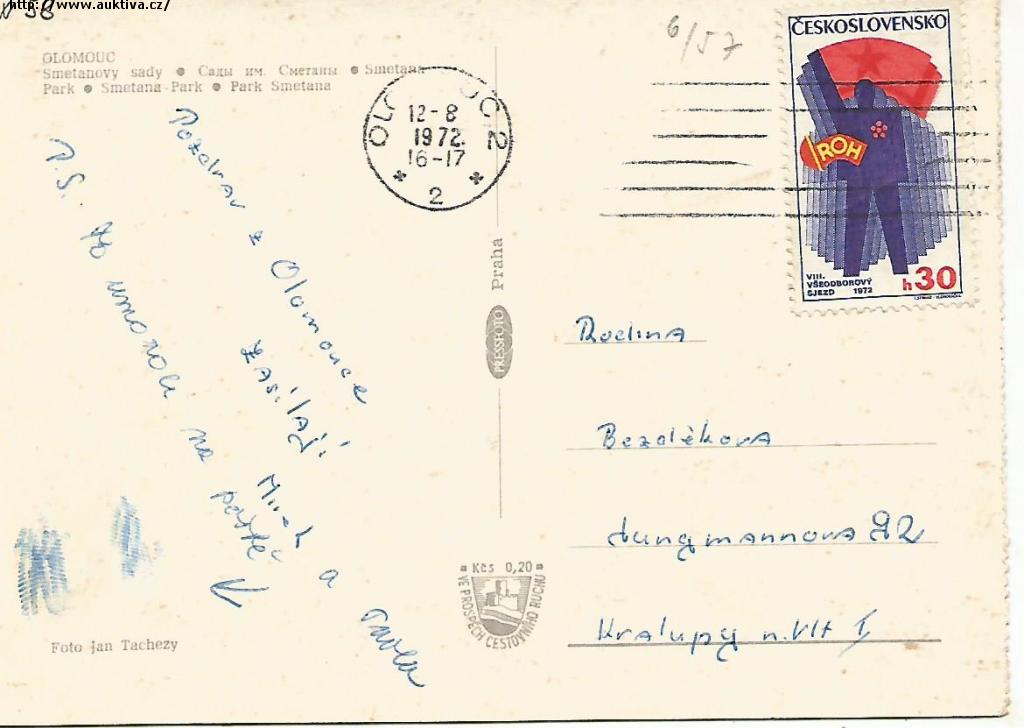 http://www.auktiva.cz/
6/57
OLOMOUC
Smetanovy sady ● Сады им. Сметаны ● Smetana
Park ● Smetana-Park ● Park Smetana
OLOMOUC 2
12-8
1972
16-17
* 2 *
ČESKOSLOVENSKO
ROH
VIII.
VŠEODBOROVÝ
SJEZD 1972
h30
Pozdrav z Olomouce
zasílají
Mirek a Pavla
P.S. To umazali na poště
PRESSFOTO Praha
Rodina
Bezděkova
Jungmannova 82
Kralupy n. Vlt I
Kčs 0,20
VE PROSPĚCH CESTOVNÍHO RUCHU
Foto Jan Tachezy